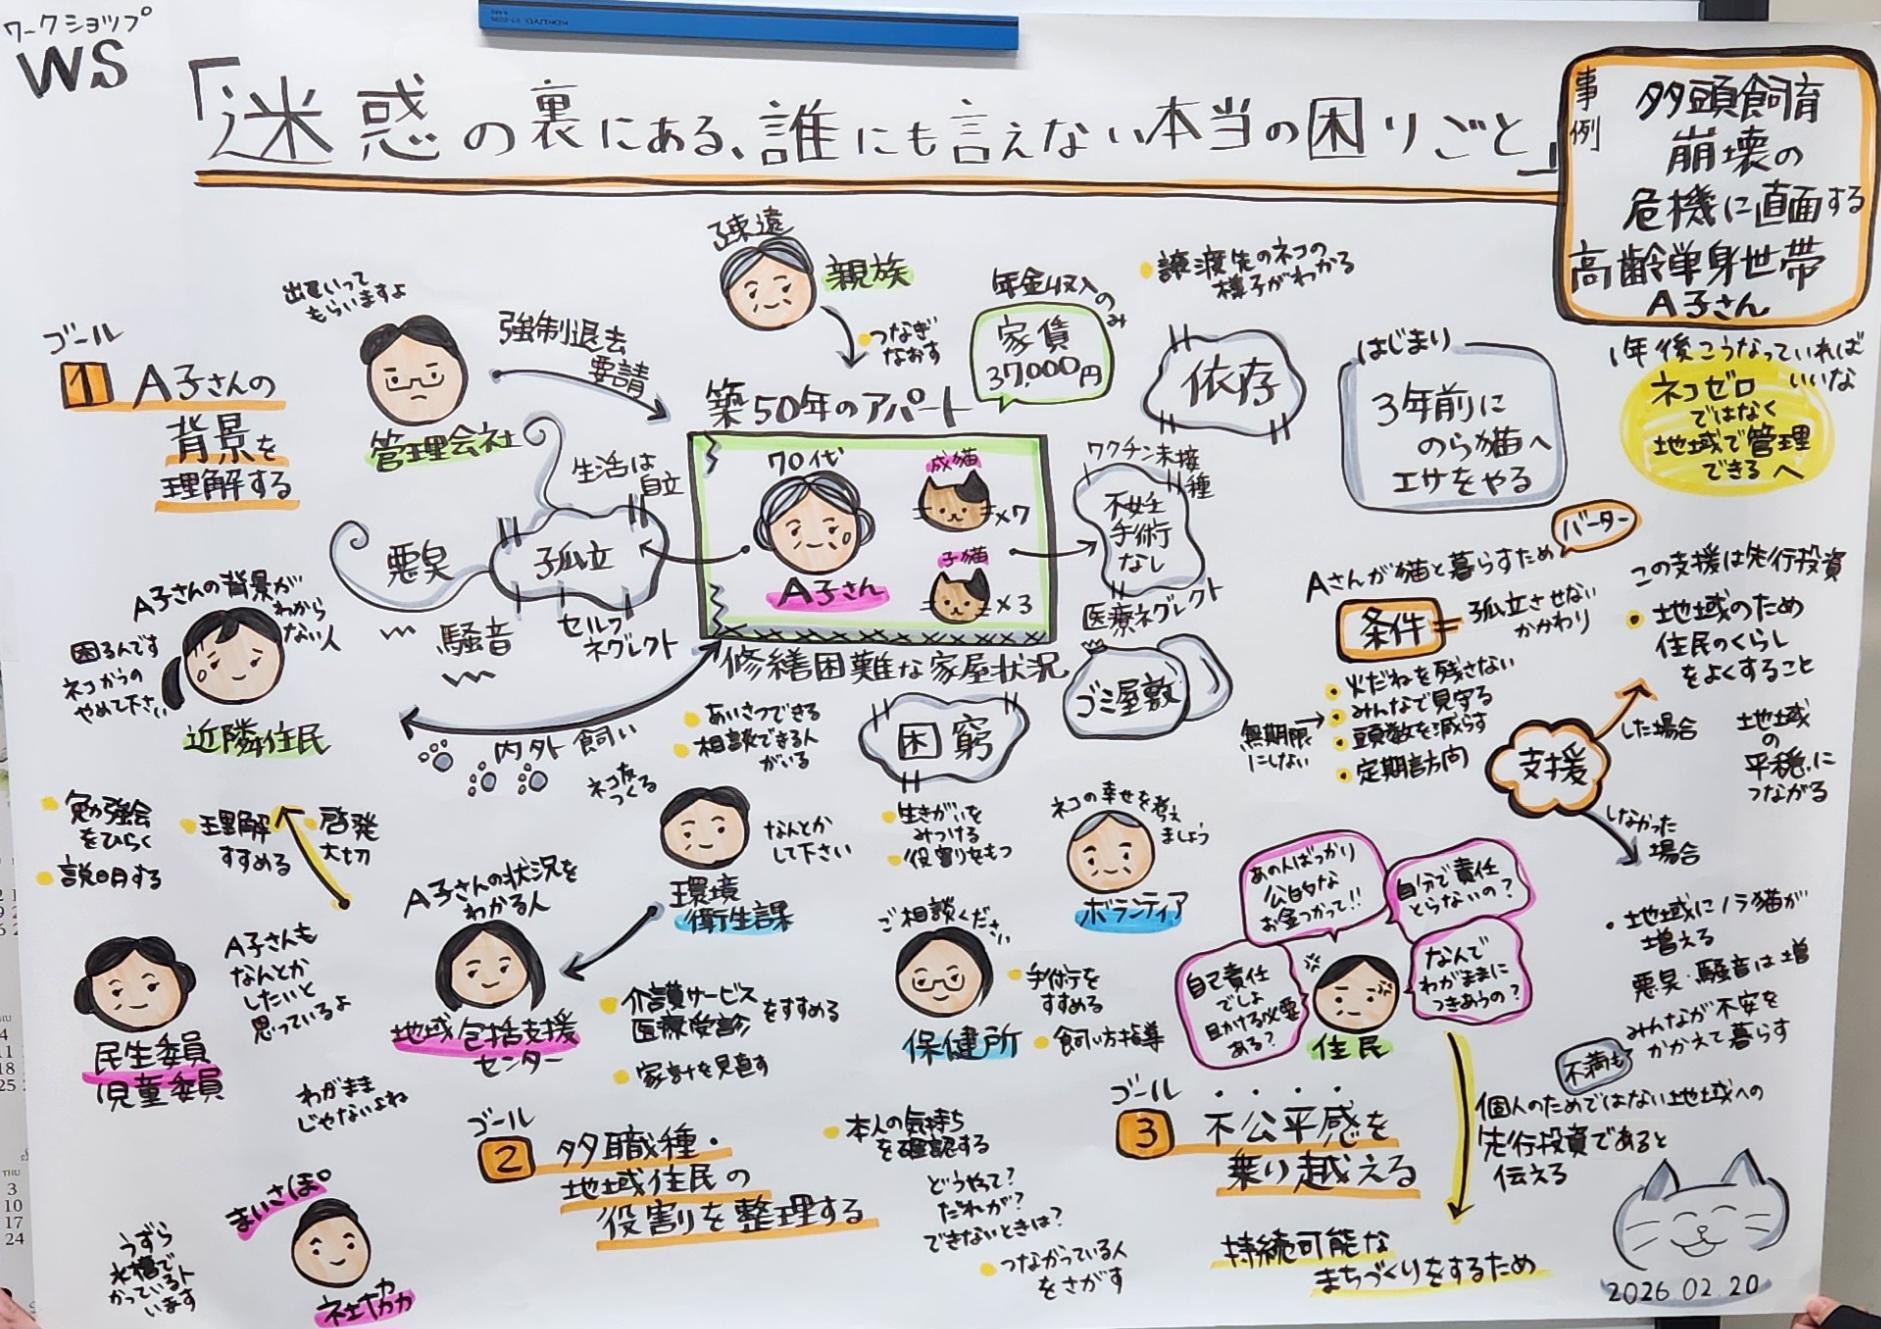 ワークショップ
WS
「迷惑の裏にある、誰にも言えない本当の困りごと」
事例
多頭飼育
崩壊の
危機に直面する
高齢単身世帯
A子さん
ゴール
1 A子さんの
背景を
理解する
出ていって
もらいますよ
管理会社
強制退去
要請
疎遠
親族
つなぎ
なおす
年金収入のみ
家賃
37,000円
譲渡先のネコの
様子がわかる
依存
はじまり
3年前に
のら猫へ
エサをやる
1年後こうなっていれば
いいな
ネコゼロ
ではなく
地域で管理
できるへ
築50年のアパート
70代
A子さん
成猫
×7
子猫
×3
修繕困難な家屋状況
生活は
自立
孤立
悪臭
騒音
セルフ
ネグレクト
ワクチン未接種
不妊
手術
なし
医療ネグレクト
ゴミ屋敷
困窮
A子さんの背景が
わから
ない人
困るんです
ネコかうの
やめて下さい
近隣住民
内外飼い
あいさつできる
相談できる人
がいる
ネコ友
つくる
バーター
Aさんが猫と暮らすため
条件=孤立させない
かかわり
火だねを残さない
みんなで見守る
頭数を減らす
定期訪問
無期限
にしない
この支援は先行投資
地域のため
住民のくらし
をよくすること
支援
した場合
地域
の
平穏に
つながる
しなかった
場合
・地域にノラ猫が
増える
悪臭・騒音は増
みんなが不安を
かかえて暮らす
不満も
勉強会
をひらく
説明する
理解
すすめる
啓発
大切
A子さんの状況を
わかる人
地域包括支援
センター
環境
衛生課
なんとか
して下さい
生きがいを
みつける
役割をもつ
ネコの幸せを考え
ましょう
ボランティア
ご相談ください
保健所
手術を
すすめる
飼い方指導
介護サービス
医療受診
をすすめる
家計を見直す
A子さんも
なんとか
したいと
思っているよ
民生委員
児童委員
わがまま
じゃないよね
まいさぽ
社協
うずら
水槽で
かっている人
います
ゴール
2 多職種・
地域住民の
役割を整理する
本人の気持ち
を確認する
どうやって?
だれが?
できないときは?
つながっている人
をさがす
あの人ばっかり
公的な
お金つかって!!
自分で責任
とらないの?
自己責任
でしょ
目かける必要
ある?
なんで
わがままに
つきあうの?
住民
ゴール
3 不公平感を
乗り越える
個人のためではない地域への
先行投資であると
伝える
持続可能な
まちづくりをするため
2026.02.20